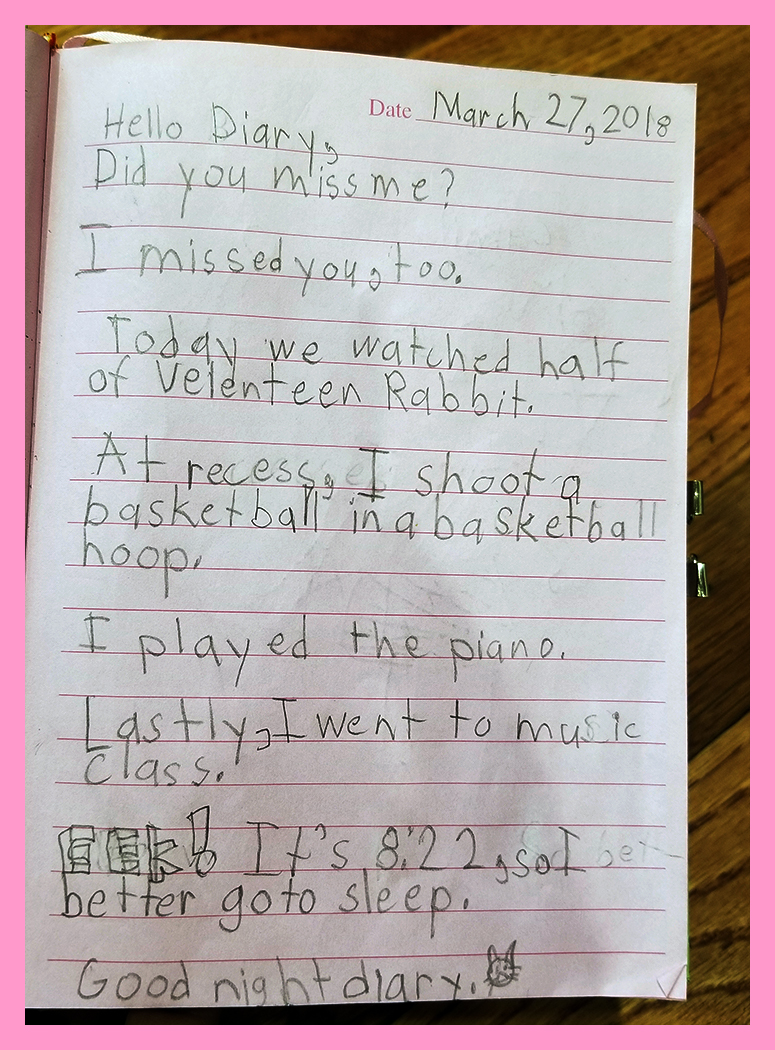 Date March 27, 2018
Hello Diary,
Did you miss me?
I missed you, too.
Today we watched half
of Velenteen Rabbit.
At recess, I shoot a
basketball in a basketball
hoop.
I played the piano.
Lastly, I went to music
class.
EEk! It's 8:22, so I bet
better go to sleep.
Good night diary.